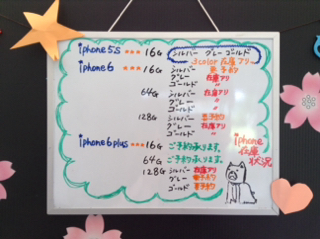 iphone5S ***16G シルバー グレー ゴールド
3color在庫アリ
iphone6 ***16G シルバー 要予約
グレー 在庫アリ
ゴールド 〃
64G シルバー 〃
グレー 〃
ゴールド 〃
128G シルバー 要予約
グレー 在庫アリ
ゴールド 〃
iphone6plus ***16G ご予約承ります。
64G ご予約承ります。
128G シルバー 在庫アリ
グレー 要予約
ゴールド 要予約
iphone
在庫
状況